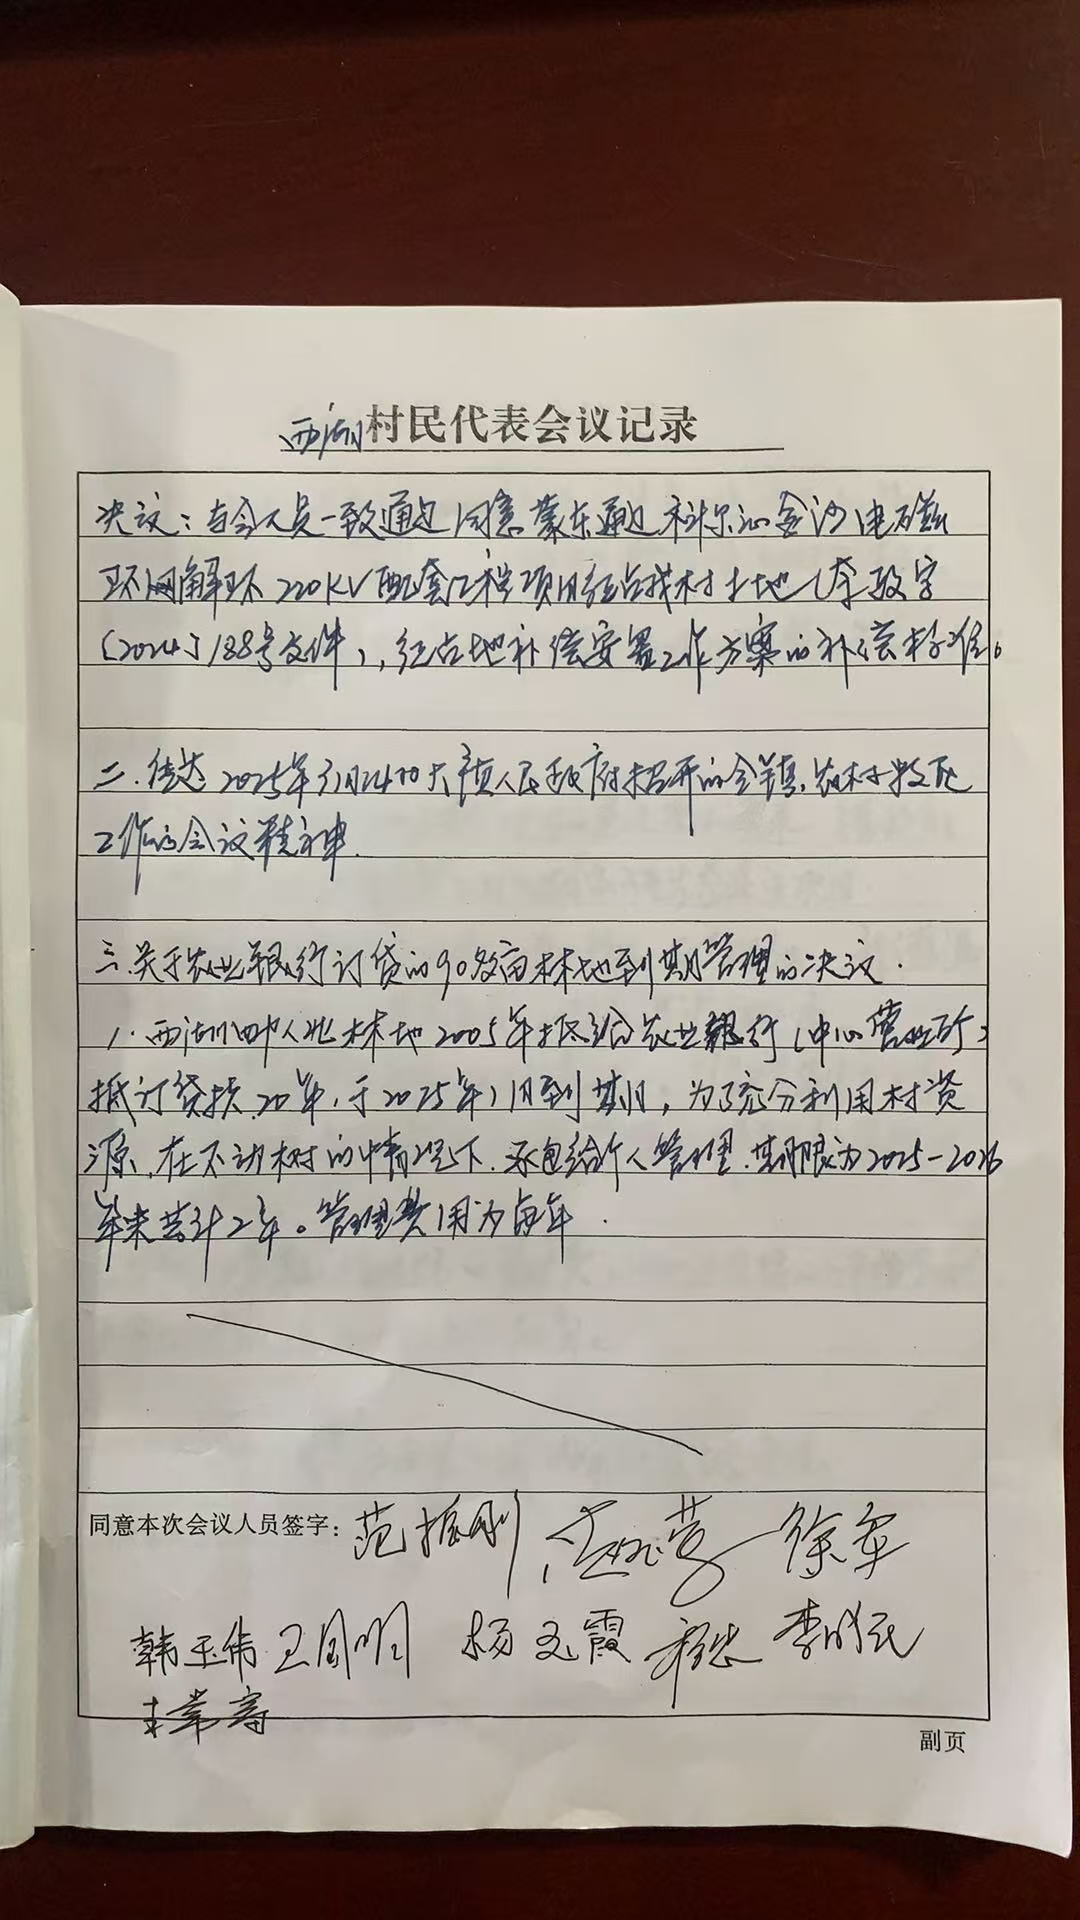 西湖村民代表会议记录
决议：与会人员一致通过同意蒙东通辽科尔沁金沙电磁
环网解环220KV配套工程项目征占我村土地（奈政字
〔2024〕188号文件），征占地补偿安置工作方案的补偿标准。
二.传达2025年3月24日大镇人民政府招开的全镇.农村牧区
工作的会议精神.
三.关于农业银行订贷的90多亩林地到期管理的决议.
1.西湖四中人北林地2005年抵给农业银行（中心营业所）
抵订贷款20年,于2025年1月到期,为了充分利用村资
源.在不动树的情况下.承包给个人管理.期限为2025-2026
年末共计2年。管理费用为每年.
同意本次会议人员签字：范振刚 徐军
韩玉伟 王国明 杨文霞 李
副页